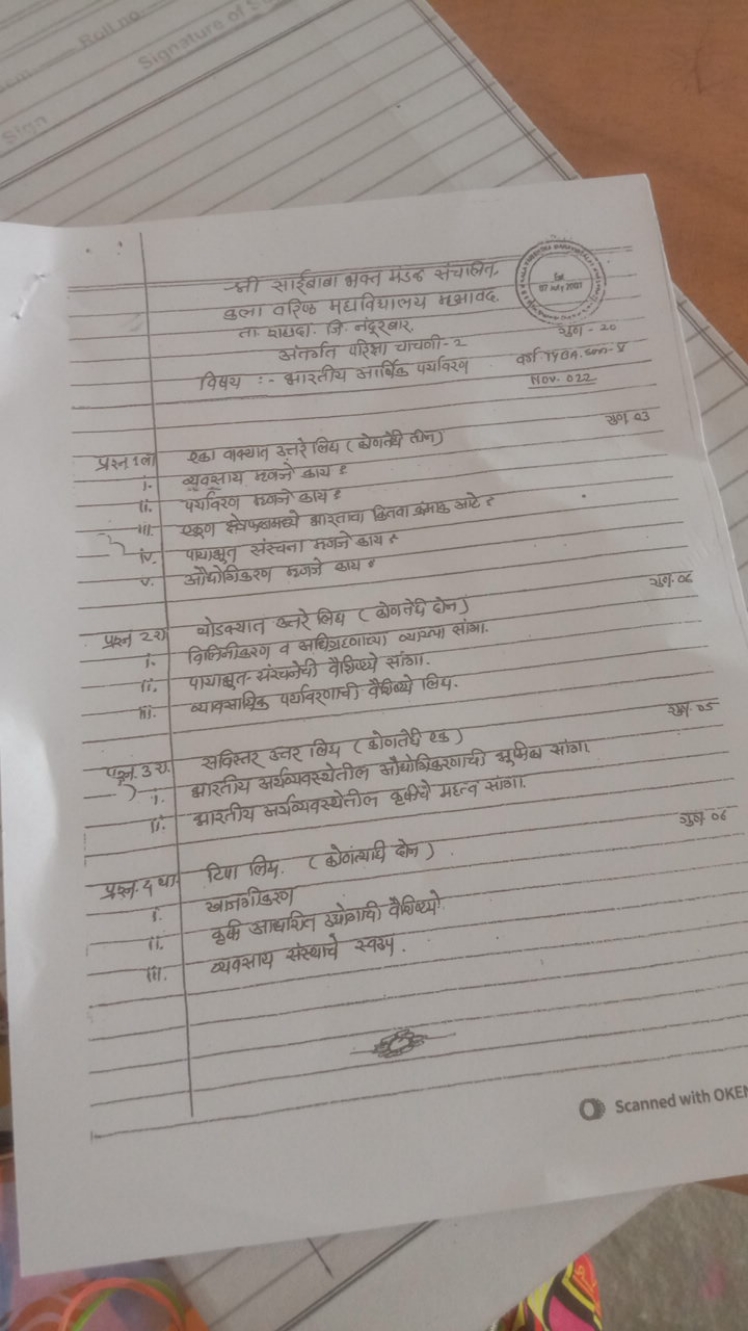 Roll no
Signature of S
Sign
श्री साईबाबा भक्त मंडळ संचालित,
कला वरिष्ठ महाविद्यालय म्हसावद.
ता. शहादा. जि. नंदूरबार.
गुण - 20
अंतर्गत परिक्षा चाचणी - 2
विषय :- भारतीय आर्थिक पर्यावरण
वर्ग TYBA. sem-V
NOV. 022
Est
07 July 2001
गुण 03
प्रश्न 1ला एका वाक्यात उत्तरे लिहा (कोणतेही तीन)
i. व्यवसाय म्हणजे काय ?
ii. पर्यावरण म्हणजे काय ?
iii. एकूण क्षेत्रफळामध्ये भारताचा कितवा क्रमांक आहे ?
iv. पायाभूत संरचना म्हणजे काय ?
v. औद्योगिकरण म्हणजे काय ?
गुण. 06
प्रश्न 2रा थोडक्यात उत्तरे लिहा (कोणतेही दोन)
i. विलिनीकरण व अधिग्रहणाच्या व्याख्या सांगा.
ii. पायाभूत-संरचनेची वैशिष्ट्ये सांगा.
iii. व्यावसायिक पर्यावरणाची वैशिष्ट्ये लिहा.
गुण. 05
प्रश्न. 3 रा. सविस्तर उत्तर लिहा (कोणतेही एक)
i. भारतीय अर्थव्यवस्थेतील औद्योगिकरणाची भुमिका सांगा.
ii. भारतीय अर्थव्यवस्थेतील कृषीचे महत्व सांगा.
गुण 06
प्रश्न. 4 था. टिपा लिहा. (कोणत्याही दोन)
i. खाजगीकरण
ii. कृषी आधारित उद्योगाची वैशिष्ट्ये.
iii. व्यवसाय संस्थाचे स्वरूप.
Scanned with OKEN